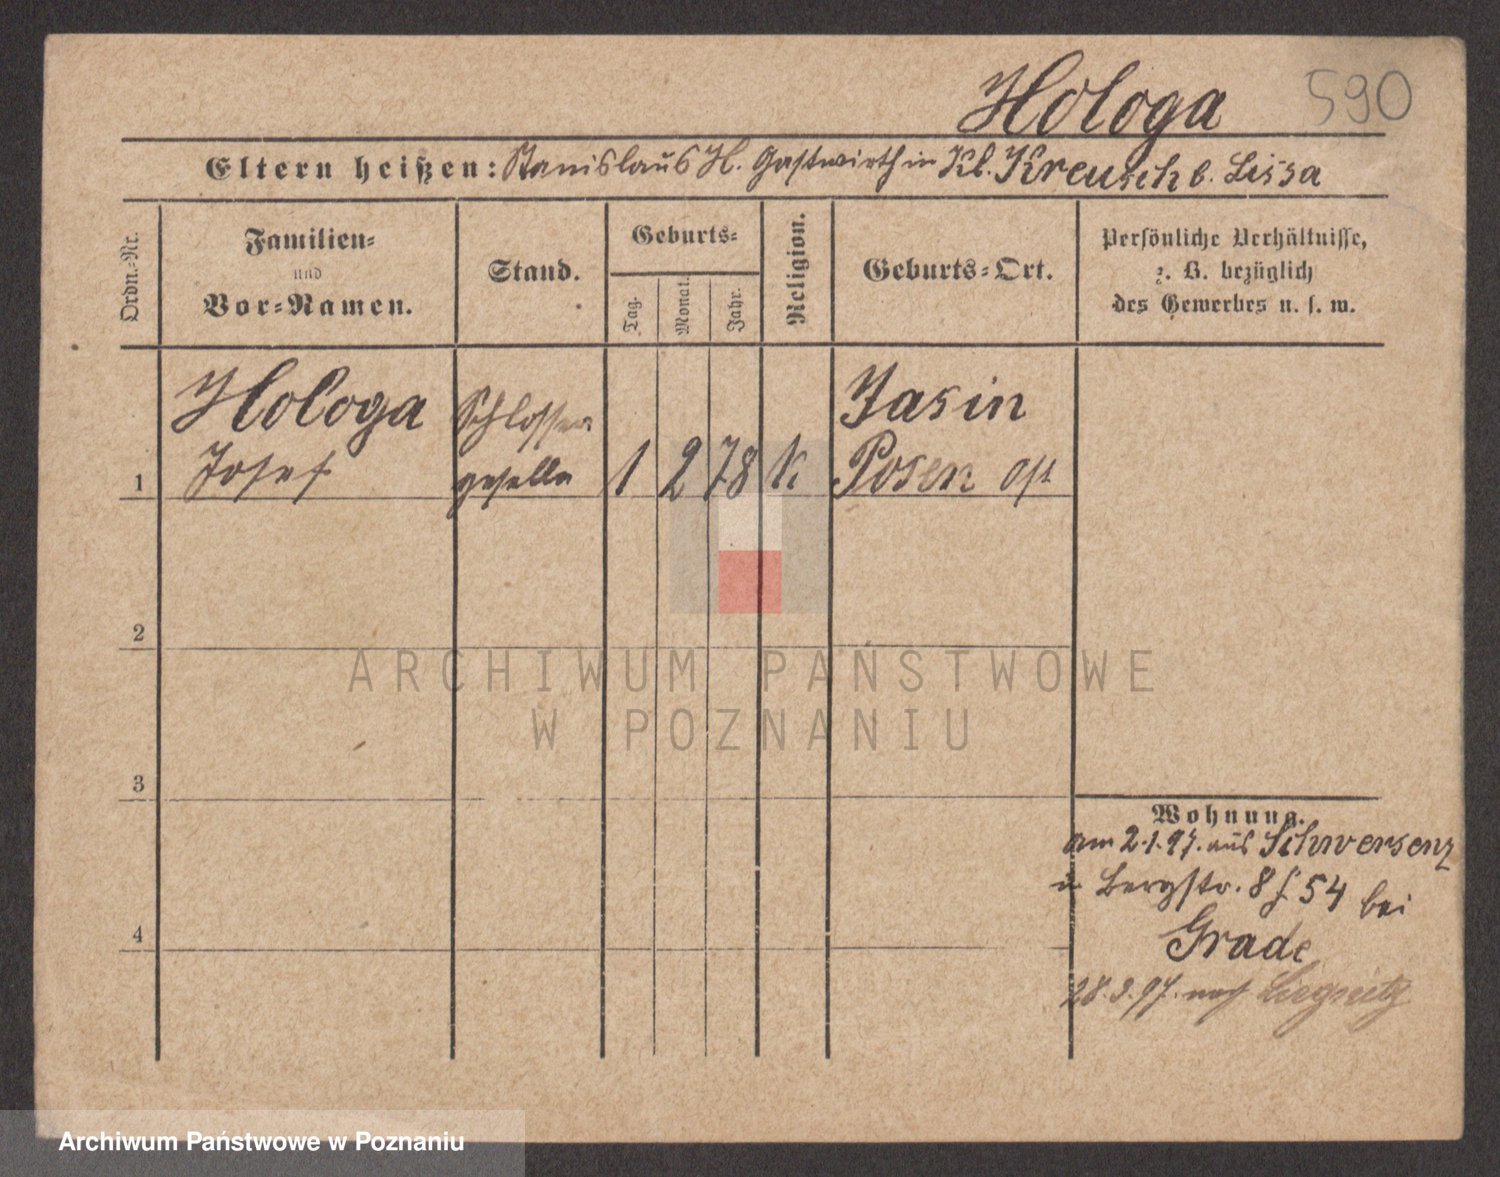 Hologa 590
Eltern heißen: Stanislaus H. Gastwirth in Kl. Kreutsch b. Lissa
Ordn.-Nr.
Familien-
und
Vor-Namen.
Stand.
Geburts-
Tag.
Monat.
Jahr.
Religion.
Geburts-Ort.
Persönliche Verhältnisse,
z. B. bezüglich
des Gewerbes u. s. w.
Hologa Schlosser Jasin
1 Josef geselle 1 2 78 k Posen Ost
2
ARCHIWUM PAŃSTWOWE
W POZNANIU
3
Wohnung.
am 2.1.97. aus Schwersenz
Bergstr. 8 54 bei
Grade
4
28.3.97. nach Liegnitz
Archiwum Państwowe w Poznaniu